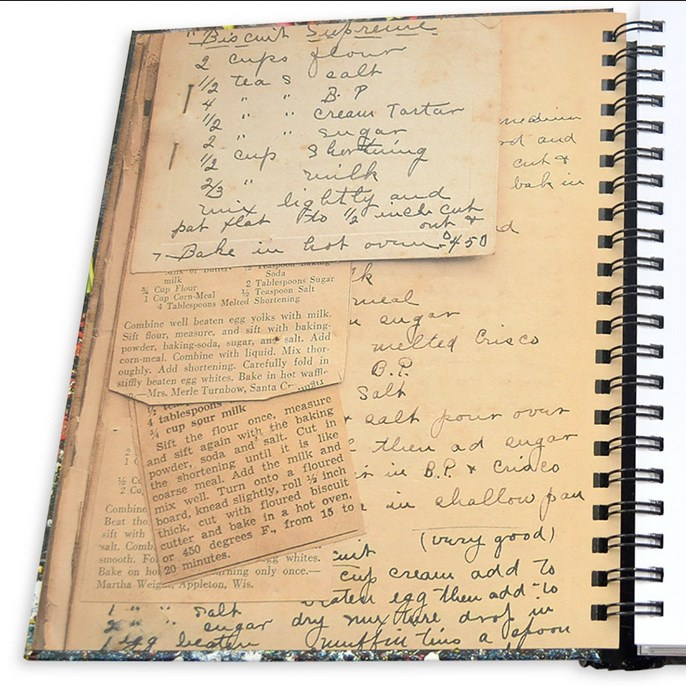 "Biscuit Supreme
2 cups flour
1/2 tea s salt
4 " " B.P
1/2 " " cream Tartar
2 " " sugar
1/2 cup Shortning
2/3 " milk
mix lightly and
pat flat to 1/2 inch cut
out &
Bake in hot oven - 450
medium
and
cut &
bak in
milk
Soda
¾ Cup Flour 2 Tablespoons Sugar
1 Cup Corn-Meal ½ Teaspoon Salt
4 Tablespoons Melted Shortening
Combine well beaten egg yolks with milk.
Sift flour, measure, and sift with baking-
powder, baking-soda, sugar, and salt. Add
corn-meal. Combine with liquid. Mix thor-
oughly. Add shortening. Carefully fold in
stiffly beaten egg whites. Bake in hot waffle-
—Mrs. Merle Turnbow, Santa
4 tablespoons
¾ cup sour milk
Sift the flour once, measure
and sift again with the baking
powder, soda and salt. Cut in
the shortening until it is like
coarse meal. Add the milk and
mix well. Turn onto a floured
board, knead slightly, roll ½ inch
thick, cut with floured biscuit
cutter and bake in a hot oven,
or 450 degrees F., from 15 to
20 minutes.
meal
sugar
melted Crisco
B.P.
Salt
salt pour over
then ad sugar
in B.P. & Crisco
in shallow pan
(very good)
cup cream add to
beaten egg then add to
dry mixture drop in
muffin tins a spoon
Combine
Beat
sift with
salt.
smooth. egg whites.
Bake on hot turning only once.—
Martha Appleton, Wis.
1 " " salt
2 " " sugar
1 egg beaten